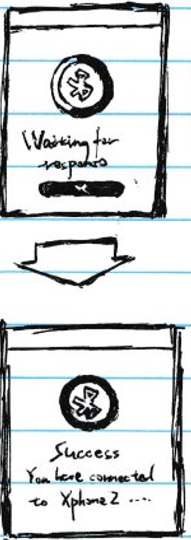 Waiting for
response
Success
You have connected
to Xphone2 ....